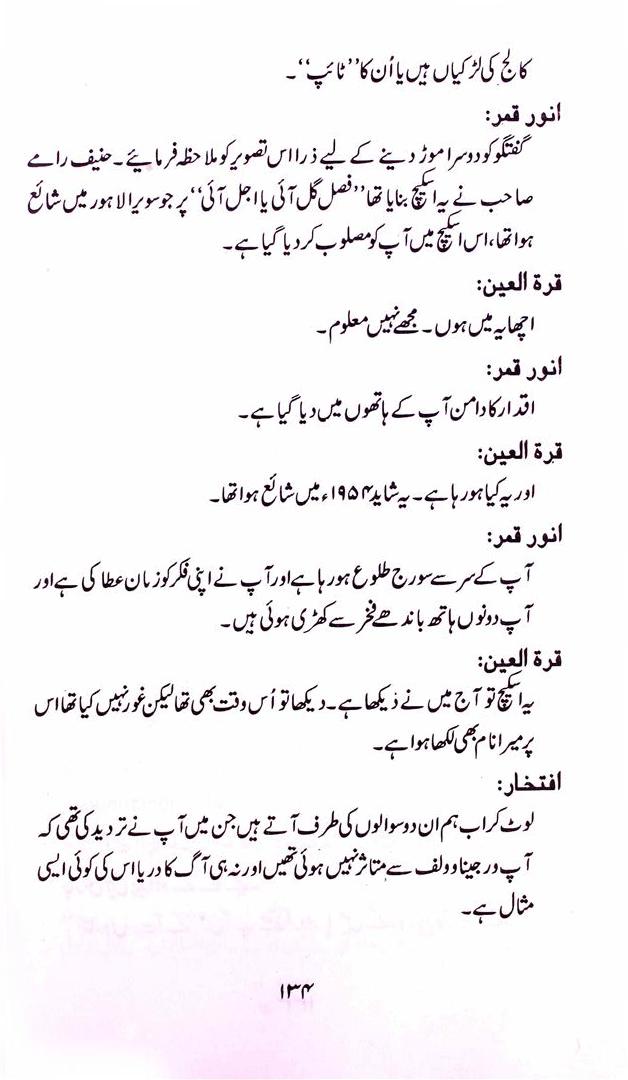 کالج کی لڑکیاں ہیں یا اُن کا ’’ٹائپ‘‘۔
انور قمر:
گفتگو کو دوسرا موڑ دینے کے لیے ذرا اس تصویر کو ملاحظہ فرمائیے۔ حنیف رامے
صاحب نے یہ اسکیچ بنایا تھا ’’فصل گل آئی یا اجل آئی‘‘ پر جو سویرا لاہور میں شائع
ہوا تھا، اس اسکیچ میں آپ کو مصلوب کر دیا گیا ہے۔
قرۃ العین:
اچھا یہ میں ہوں۔ مجھے نہیں معلوم۔
انور قمر:
اقدار کا دامن آپ کے ہاتھوں میں دیا گیا ہے۔
قرۃ العین:
اور یہ کیا ہو رہا ہے۔ یہ شاید ۱۹۵۴ء میں شائع ہوا تھا۔
انور قمر:
آپ کے سر سے سورج طلوع ہو رہا ہے اور آپ نے اپنی فکر کو زبان عطا کی ہے اور
آپ دونوں ہاتھ باندھے فخر سے کھڑی ہوئی ہیں۔
قرۃ العین:
یہ اسکیچ تو آج میں نے دیکھا ہے۔ دیکھا تو اُس وقت بھی تھا لیکن غور نہیں کیا تھا اس
پر میرا نام بھی لکھا ہوا ہے۔
افتخار:
لوٹ کر اب ہم ان دو سوالوں کی طرف آتے ہیں جن میں آپ نے تردید کی تھی کہ
آپ ورجینا وولف سے متاثر نہیں ہوئی تھیں اور نہ ہی آگ کا دریا اس کی کوئی ایسی
مثال ہے۔
۱۳۴